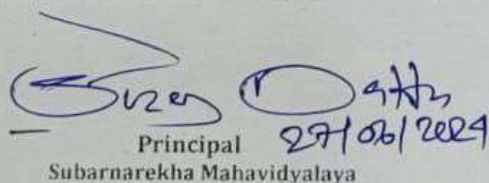 Principal
27/06/2024
Subarnarekha Mahavidyalaya